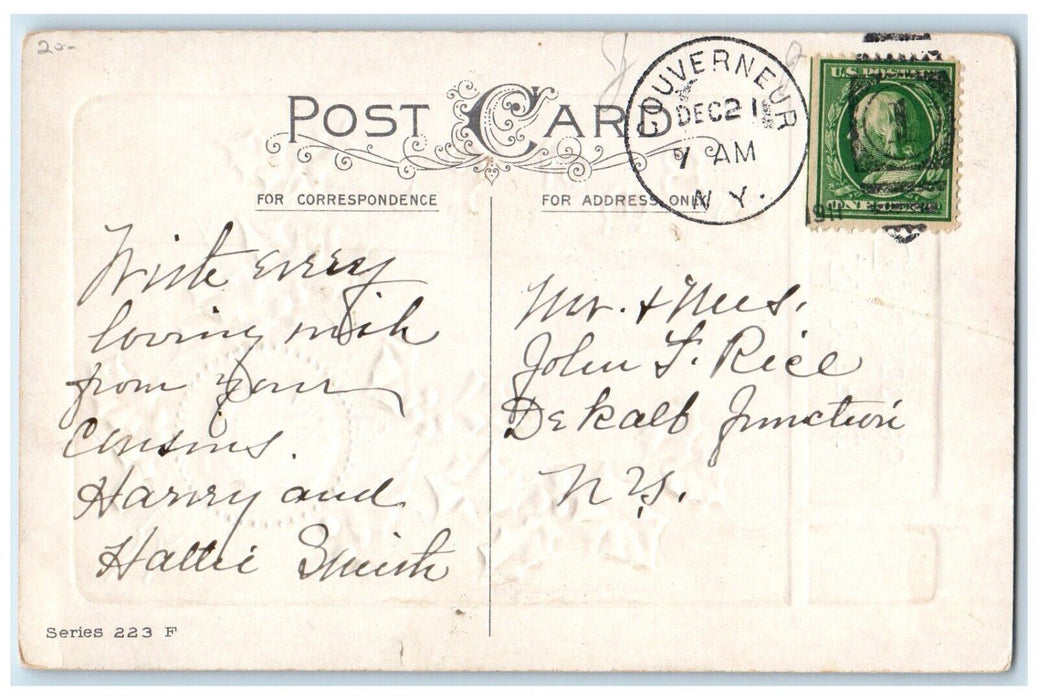 20-
POST CARD
FOR CORRESPONDENCE
FOR ADDRESS ONLY
GOUVERNEUR
DEC 21
7 AM
N.Y.
1911
U.S. POSTAGE
1
With every
loving wish
from your
Cousins.
Harvey and
Hattie Smith
Mr. & Mrs.
John F. Rice
DeKalb Junction
N.Y.
Series 223 F